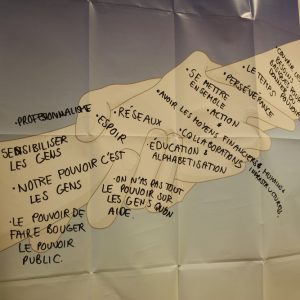 • PROFESSIONNALISME
SENSIBILISER
LES GENS
• NOTRE POUVOIR C'EST
LES GENS
• LE POUVOIR DE
FAIRE BOUGER
LE POUVOIR
PUBLIC.
• ESPOIR
• RÉSEAUX
• ON N'AS PAS TOUT
LE POUVOIR SUR
LES GENS QU'ON
AIDE.
• SE METTRE
ENSEMBLE
• ACTION
• AVOIR LES MOYENS FINANCIERS
• COLLABORATIONS
• ÉDUCATION &
ALPHABÉTISATION
• PERSÉVÉRANCE
• LE TEMPS